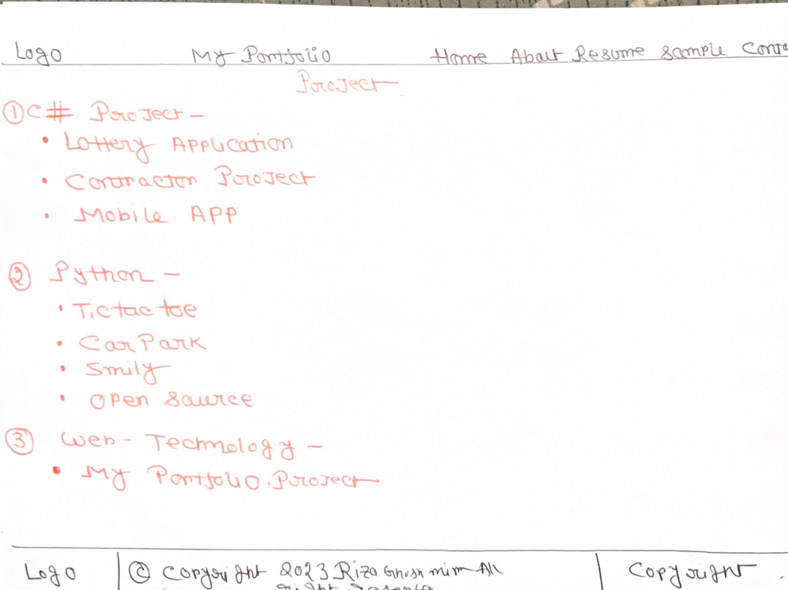 Logo My Portfolio Home About Resume Sample
Project
① C# Project -
• Lottery Application
• Contractor Project
• Mobile APP
② Python -
• Tictac toe
• Car Park
• Smily
• Open Source
③ Web - Technology -
• My Portfolio.Project
Logo © Copyright 2023 Riza Ghosh mim All Copyright